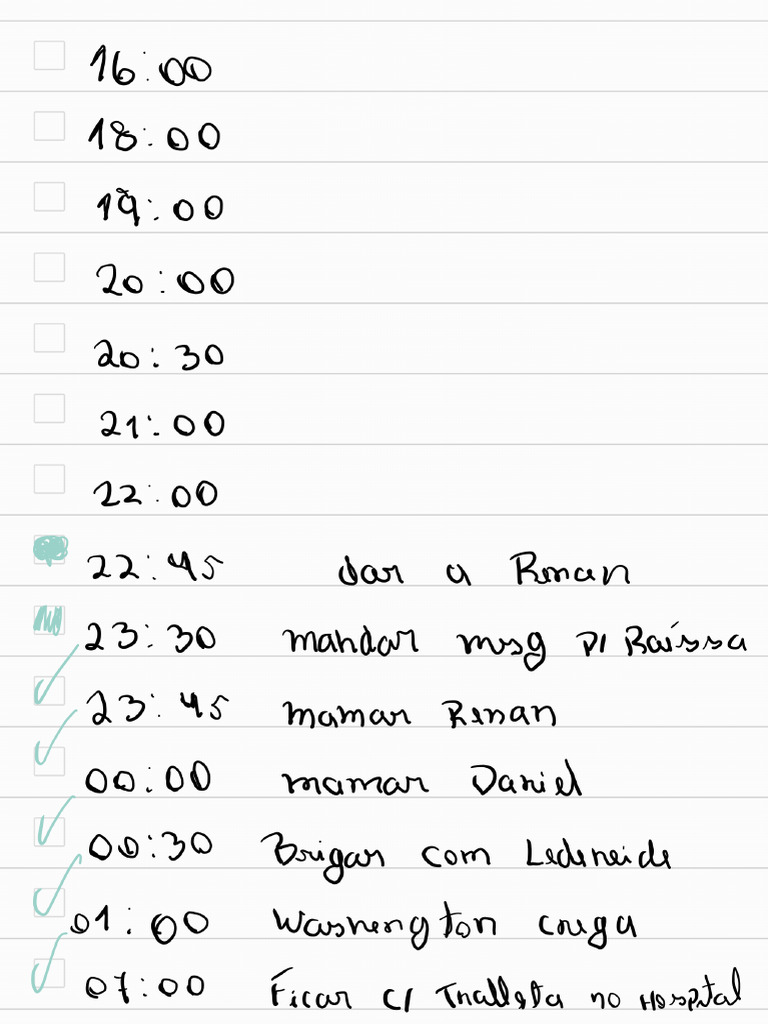 16:00
18:00
19:00
20:00
20:30
21:00
22:00
22:45 dar a Renan
23:30 mandar msg p/ Raíssa
23:45 mamar Renan
00:00 mamar Daniel
00:30 Brigar com Ledeneide
01:00 Washington
07:00 Ficar c/ no Hospital